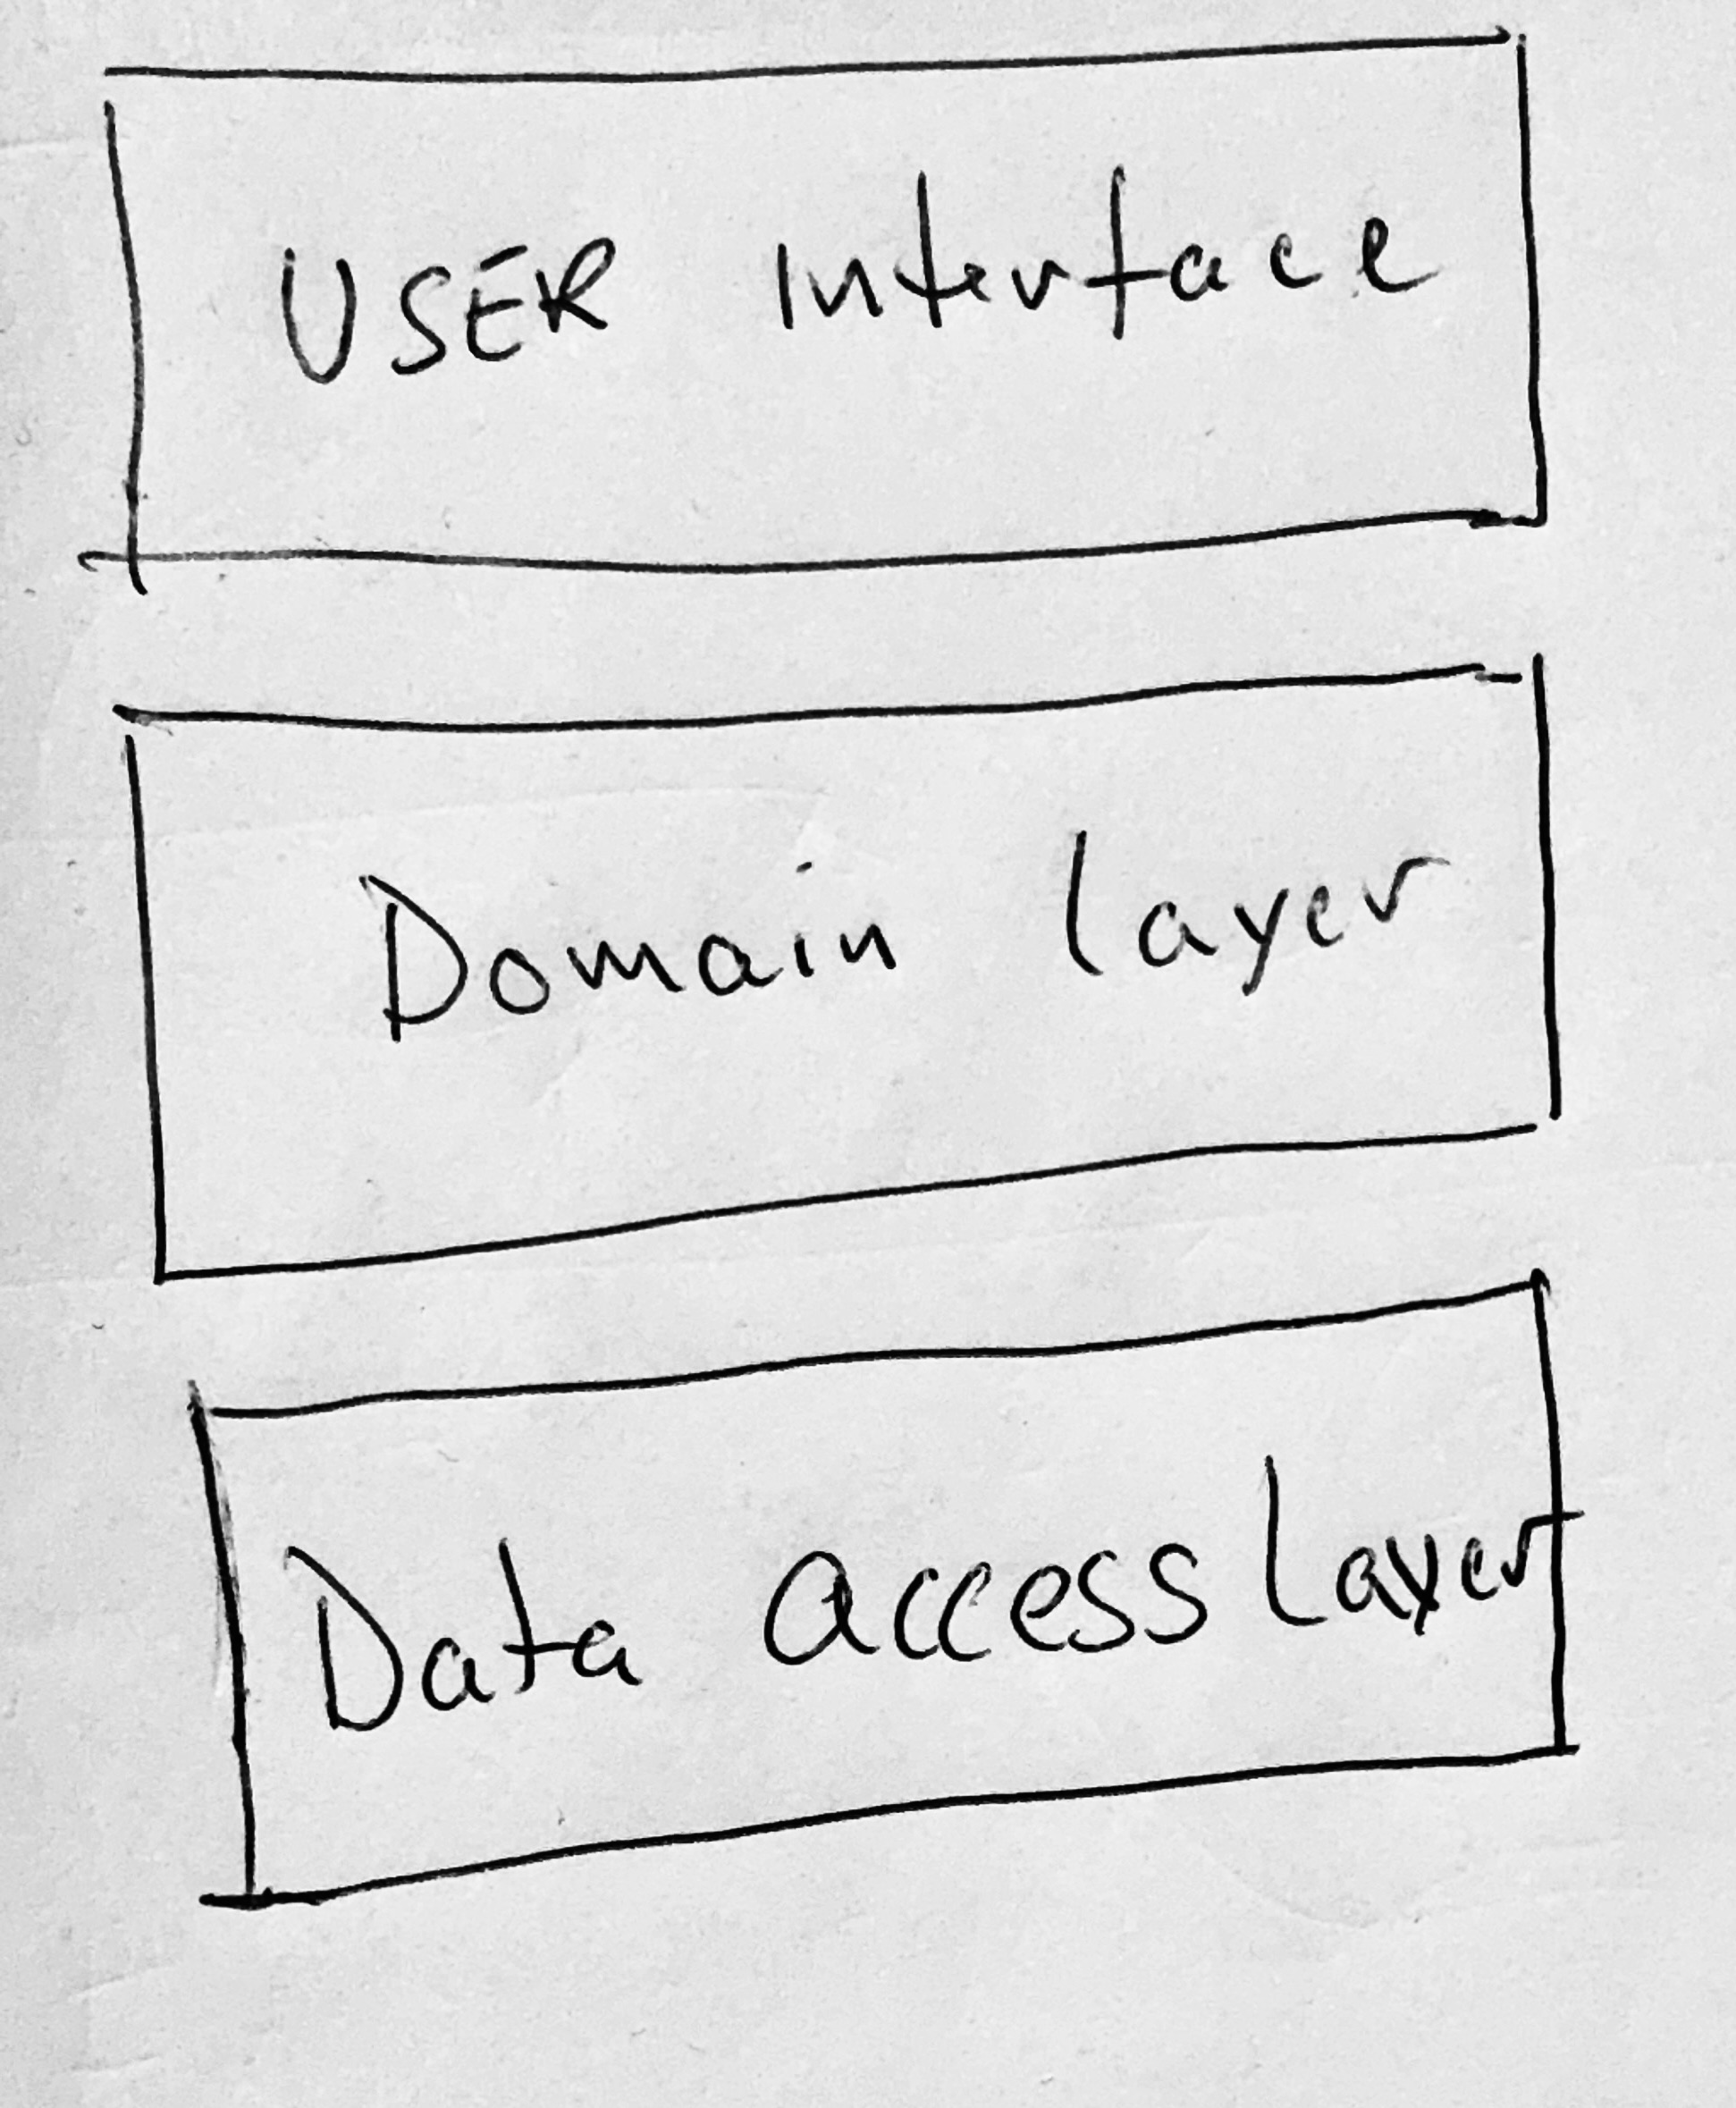 USER Interface
Domain layer
Data access layer